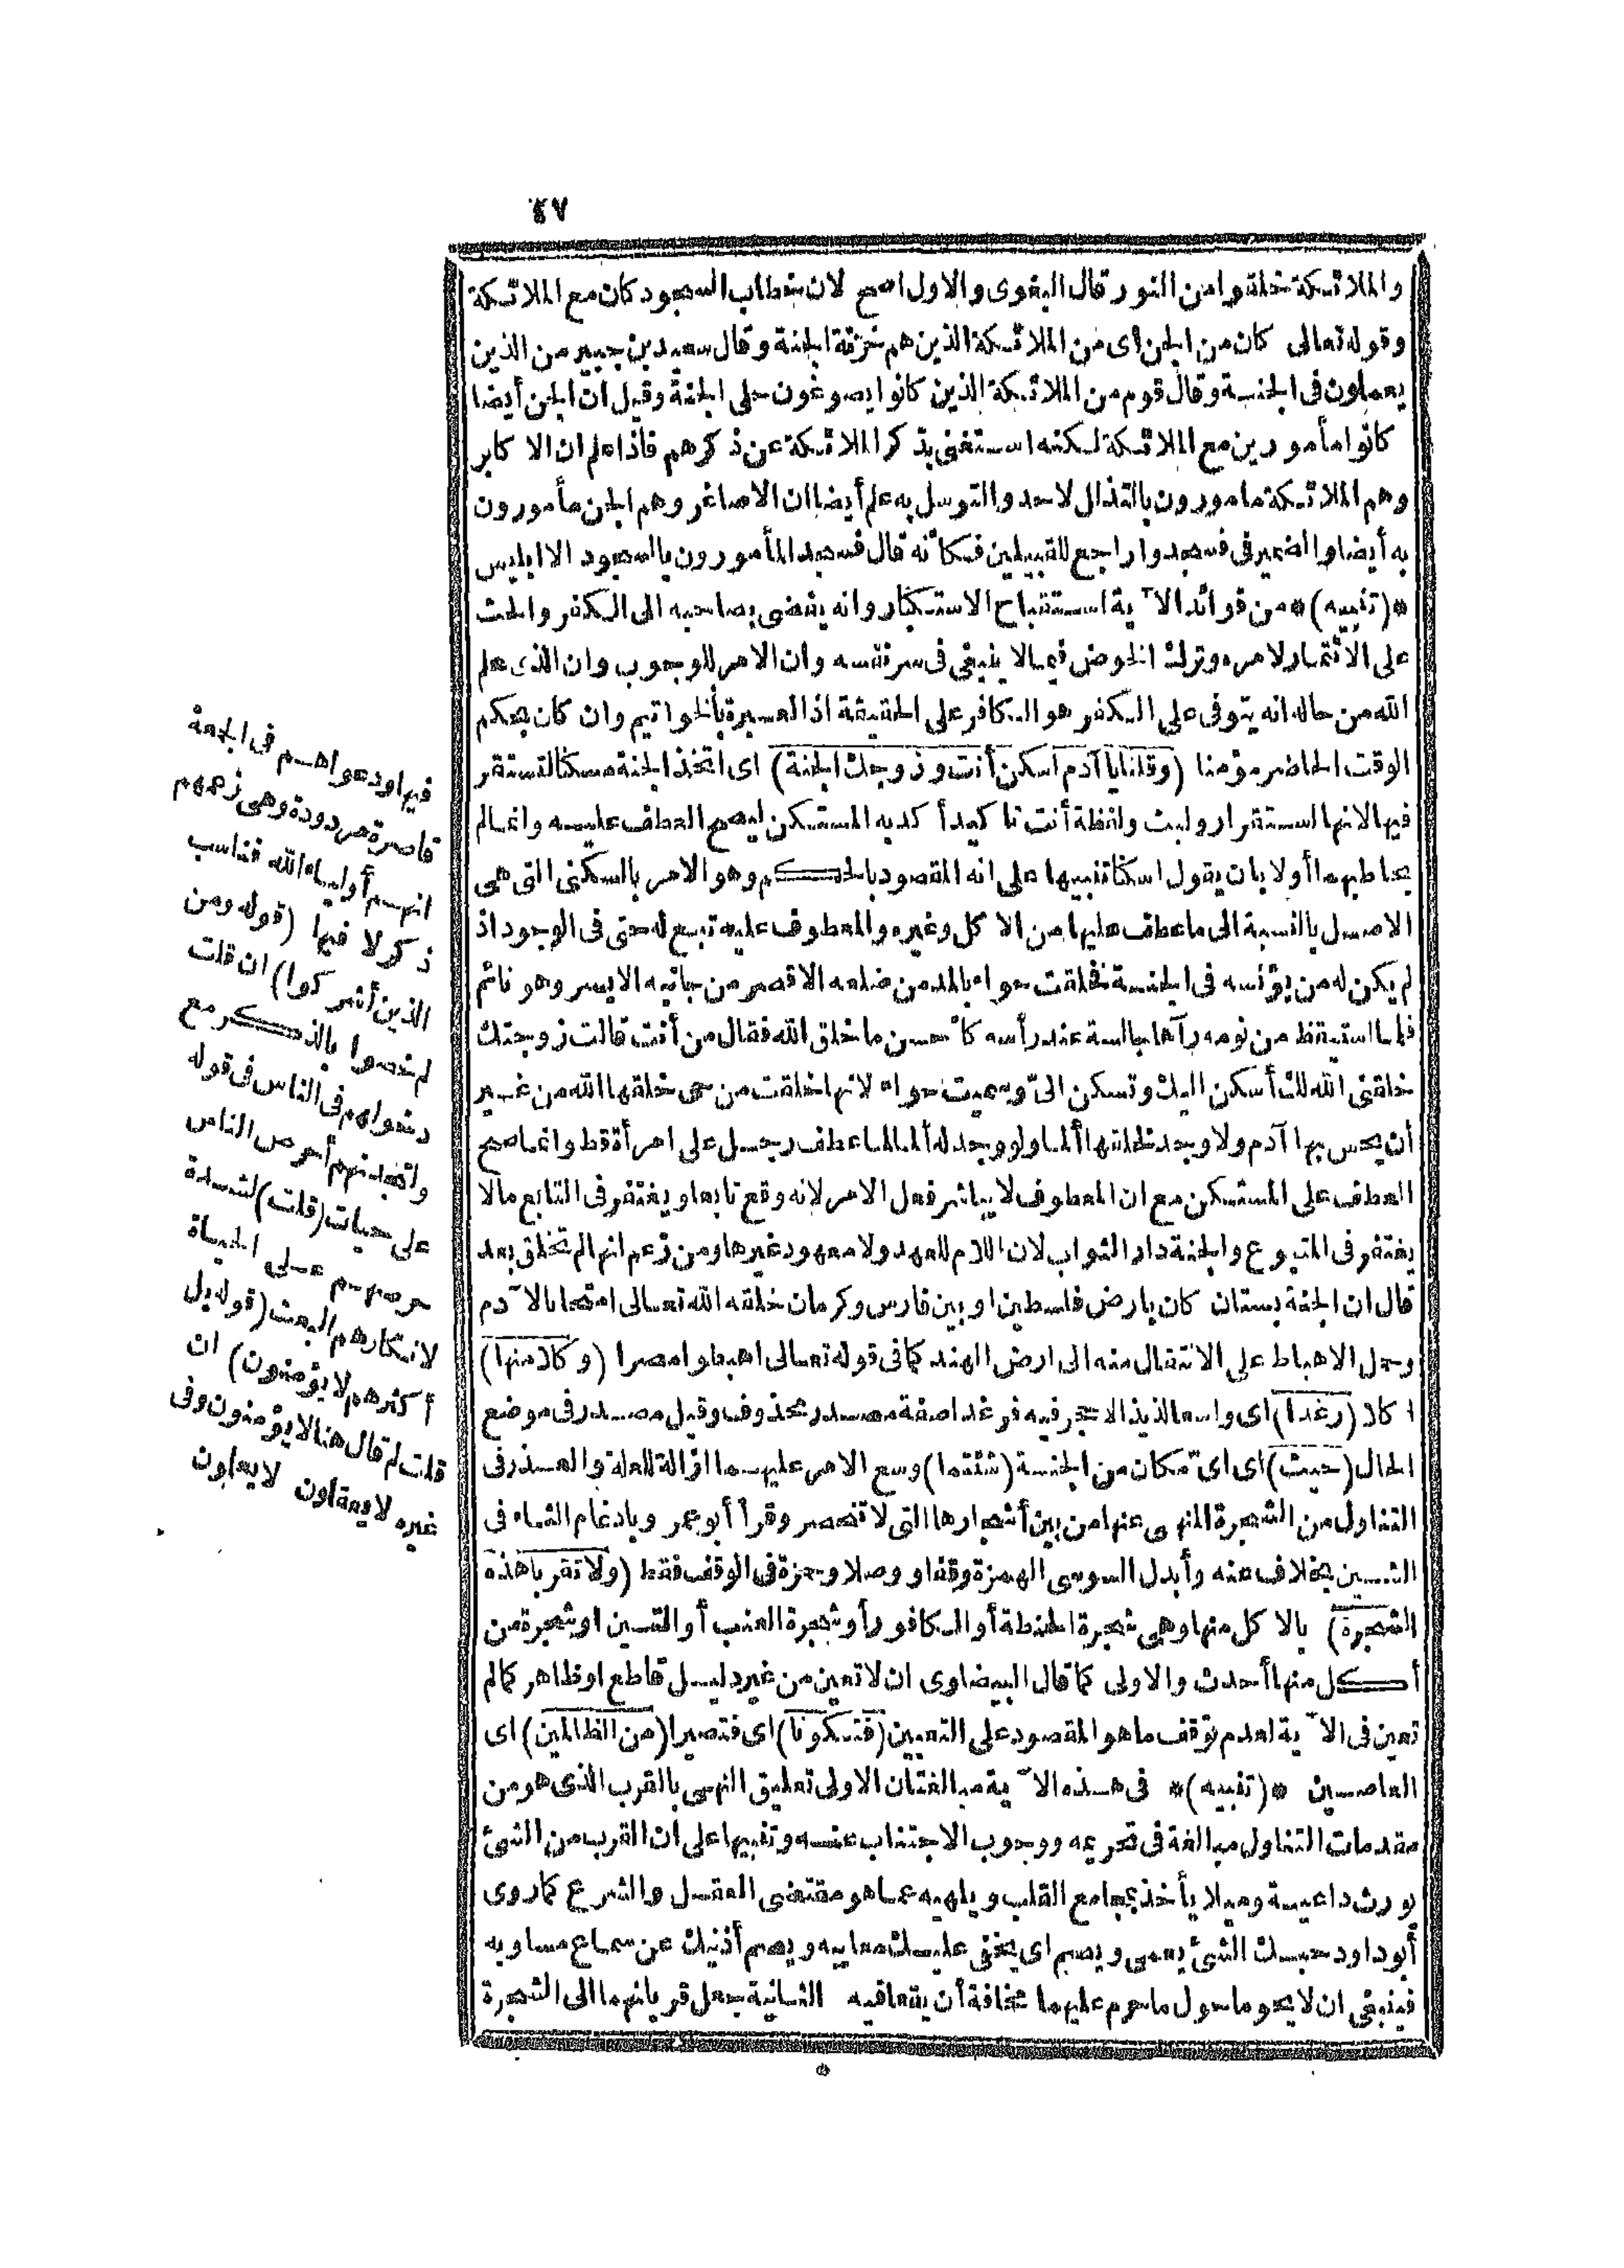 ٤٧
والملائكة خلقوا من النور قال البغوى والاول اصح لان خطاب السجود كان مع الملائكة
وقوله تعالى كان من الجن اى من الملائكة الذين هم خزنة الجنة وقال سعيد بن جبير من الذين
يعملون فى الجنة وقال قوم من الملائكة الذين كانوا يصوغون حلى الجنة وقيل ان الجن أيضا
كانوا مأمورين مع الملائكة لكنه استغنى بذكر الملائكة عن ذكرهم فاذا علم ان الا كابر
وهم الملائكة مامورون بالتذلل لاحد والتوسل به علم أيضا ان الاصاغر وهم الجن مأمورون
به أيضا والضمير فى فسجدوا راجع للقبيلين فكأنه قال فسجد المأمورون بالسجود الا ابليس
*(تنبيه)* من فوائد الآية استقباح الاستكبار وانه يفضى بصاحبه الى الكفر والحث
على الائتمار لامره وترك الخوض فيما لا ينبغى فى سر نفسه وان الامر للوجوب وان الذى علم
الله من حاله انه يتوفى على الكفر هو الكافر على الحقيقة اذ العبرة بالخواتيم وان كان بحكم
الوقت الحاضر مؤمنا (وقلنا يا آدم اسكن أنت وزوجك الجنة) اى اتخذ الجنة مسكنا لتستقر
فيها لانها استقرار ولبث ولفظة أنت تا كيد أ كد به المستكن ليصح العطف عليه وانما لم
يخاطبهما أولا بان يقول اسكنا تنبيها على انه المقصود بالحكم وهو الامر بالسكنى التى هى
الاصل بالنسبة الى ما عطف عليها من الا كل وغيره والمعطوف عليه تبع له حتى فى الوجود اذ
لم يكن له من يؤنسه فى الجنة فخلقت حواء بالمد من ضلعه الاقصر من جانبه الايسر وهو نائم
فلما استيقظ من نومه رآها جالسة عند رأسه كأحسن ما خلق الله فقال من أنت قالت زوجتك
خلقنى الله لك أسكن اليك وتسكن الىّ وسميت حواء لانها خلقت من حى خلقها الله من غير
أن يحس بها آدم ولا وجد لخلقها ألما ولو وجد له ألما لما عطف رجل على امرأة قط وانما صح
العطف على المستكن مع ان المعطوف لا يباشر فعل الامر لانه وقع تابعا ويغتفر فى التابع ما لا
يغتفر فى المتبوع والجنة دار الثواب لان اللام للعهد ولا معهود غيرها ومن زعم انها لم تخلق بعد
قال ان الجنة بستان كان بارض فلسطين او بين فارس وكرمان خلقه الله تعالى امتحانا لآدم
وحمل الاهباط على الانتقال منه الى ارض الهند كما فى قوله تعالى اهبطوا مصرا (وكلا منها)
اكلا (رغدا) اى واسعا لذيذا لا حجر فيه فرغدا صفة مصدر محذوف وقيل مصدر فى موضع
الحال (حيث) اى اىّ مكان من الجنة (شئتما) وسع الامر عليهما ازالة للعلة والعذر فى
التناول من الشجرة المنهى عنها من بين أشجارها التى لا تنحصر وقرأ أبو عمرو بادغام الثاء فى
الشين بخلاف عنه وأبدل السوسى الهمزة وقفا ووصلا وحمزة فى الوقف فقط (ولا تقربا هذه
الشجرة) بالا كل منها وهى شجرة الحنطة أو الكافور أو شجرة العنب أو التين او شجرة من
أكل منها أحدث والاولى كما قال البيضاوى ان لا تعين من غير دليل قاطع او ظاهر كما لم
تعين فى الآية لعدم توقف ما هو المقصود على التعيين (فتكونا) اى فتصيرا (من الظالمين) اى
العاصين *(تنبيه)* فى هذه الآية مبالغتان الاولى تعليق النهى بالقرب الذى هو من
مقدمات التناول مبالغة فى تحريمه ووجوب الاجتناب عنه وتنبيها على ان القرب من الشئ
يورث داعية وميلا يأخذ بمجامع القلب ويلهيه عما هو مقتضى العقل والشرع كما روى
أبو داود حبك الشئ يعمى ويصم اى يخفى عليك معايبه ويصم أذنيك عن سماع مساويه
فينبغى ان لا يحوما حول ما حرم عليهما مخافة أن يقعا فيه الثانية جعل قربانهما الى الشجرة
فيها ودعواهم فى الجمعة
قاصرة مردودة وهى زعمهم
انهم أولياء الله فناسب
ذكر لا فيها (قوله ومن
الذين أشركوا) ان قلت
لم خصوا بالذكر مع
دخولهم فى الناس فى قوله
ولتجدنهم أحرص الناس
على حيات (قلت) لشدة
حرصهم على الحياة
لانكارهم البعث (قوله بل
أكثرهم لا يؤمنون) ان
قلت لم قال هنا لا يؤمنون وفى
غيره لا يعقلون لا يعلون